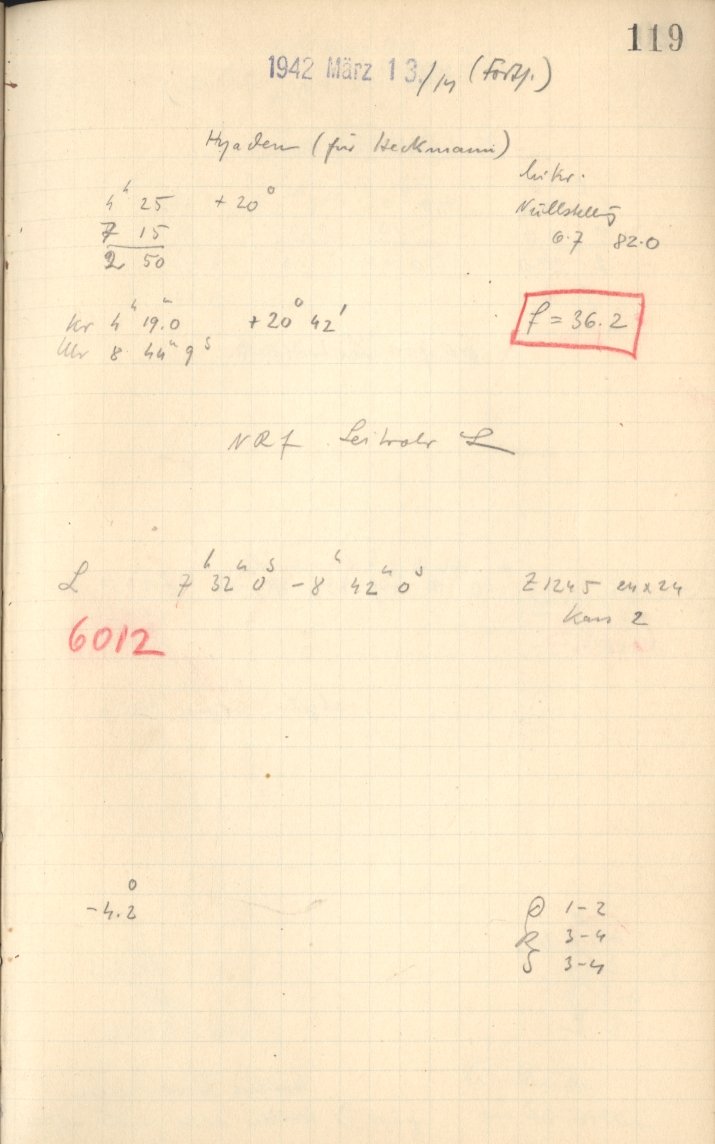 119
1942 März 13./14 (Forts.)
Hyaden (für Heckmann)
4ʰ 25 +20°
7 15
2 50
Mikr.
Nullstellg
6.7 82.0
Kr 4ʰ 19ᵐ.0 +20° 42'
Uhr 8 44ᵐ 9ˢ
f = 36.2
NRf Leitrohr L
L 7ʰ 32ᵐ 0ˢ - 8ʰ 42ᵐ 0ˢ Z1245 24x24
Kass 2
6012
-4.2°
D 1-2
R 3-4
S 3-4